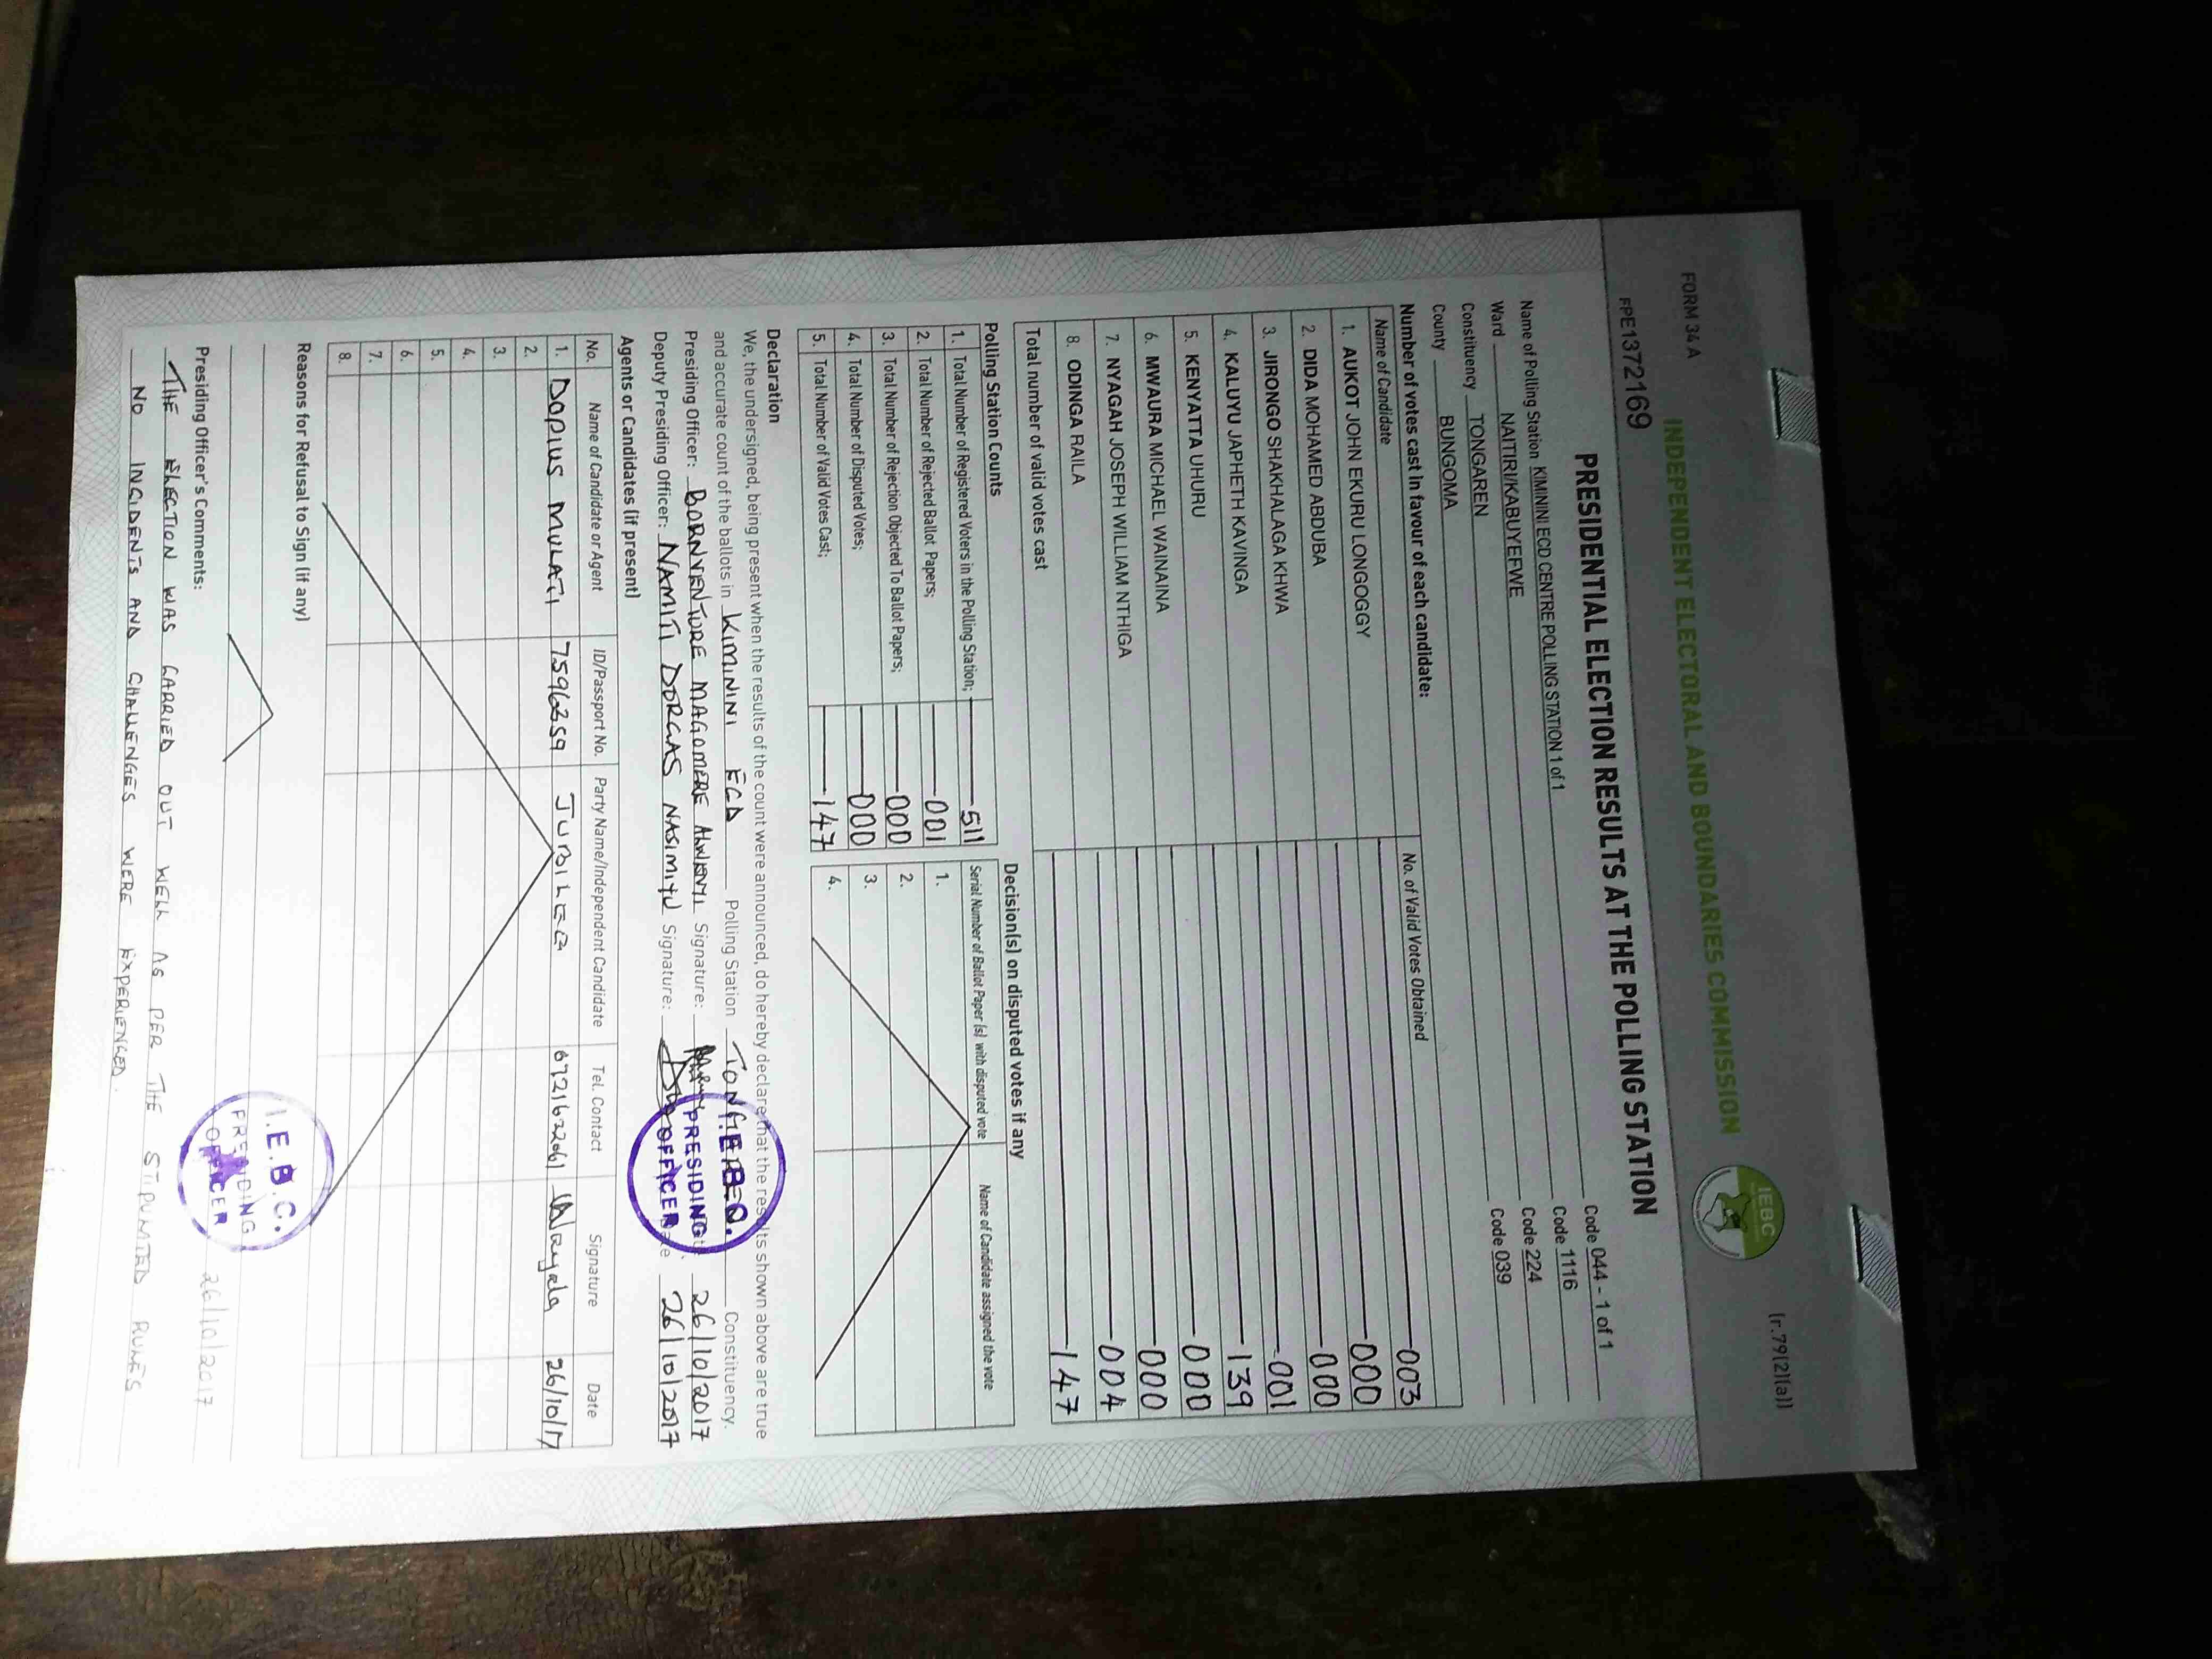 FORM 34 A
(r.79(2)(a))
INDEPENDENT ELECTORAL AND BOUNDARIES COMMISSION
IEBC
FPE1372169
PRESIDENTIAL ELECTION RESULTS AT THE POLLING STATION
Name of Polling Station KIMININI ECD CENTRE POLLING STATION 1 of 1 Code 044 - 1 of 1
Ward NAITIRI/KABUYEFWE Code 1116
Constituency TONGAREN Code 224
County BUNGOMA Code 039
Number of votes cast in favour of each candidate:
Name of Candidate No. of Valid Votes Obtained
1. AUKOT JOHN EKURU LONGOGGY 003
2. DIDA MOHAMED ABDUBA 000
3. JIRONGO SHAKHALAGA KHWA 000
4. KALUYU JAPHETH KAVINGA 001
5. KENYATTA UHURU 139
6. MWAURA MICHAEL WAINAINA 000
7. NYAGAH JOSEPH WILLIAM NTHIGA 000
8. ODINGA RAILA 004
Total number of valid votes cast 147
Polling Station Counts
1. Total Number of Registered Voters in the Polling Station; 511
2. Total Number of Rejected Ballot Papers; 001
3. Total Number of Rejection Objected To Ballot Papers; 000
4. Total Number of Disputed Votes; 000
5. Total Number of Valid Votes Cast; 147
Decision(s) on disputed votes if any
Serial Number of Ballot Paper (s) with disputed vote Name of Candidate assigned the vote
1.
2.
3.
4.
Declaration
We, the undersigned, being present when the results of the count were announced, do hereby declare that the results shown above are true
and accurate count of the ballots in KIMININI ECD Polling Station Constituency.
Presiding Officer: BORNVENTURE MAGOMERE Signature: 26/10/2017
Deputy Presiding Officer: NAMITI DORCAS NASIMIYU Signature: Date 26/10/2017
I.E.B.C.
PRESIDING
OFFICER
Agents or Candidates (if present)
No. Name of Candidate or Agent ID/Passport No. Party Name/Independent Candidate Tel. Contact Signature Date
1. DOPIUS MULATI JUBILEE 26/10/17
2.
3.
4.
5.
6.
7.
8.
Reasons for Refusal to Sign (if any)
Presiding Officer's Comments:
THE ELECTION WAS CARRIED OUT WELL AS PER THE STIPULATED RULES
NO INCIDENTS AND CHALLENGES WERE EXPERIENCED.
I.E.B.C.
PRESIDING
OFFICER
26/10/2017